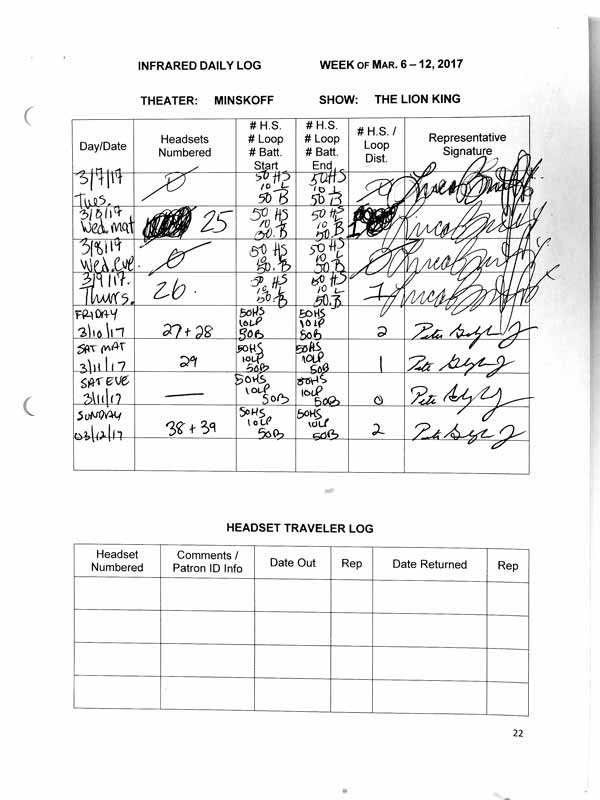 INFRARED DAILY LOG WEEK OF MAR. 6 – 12, 2017
THEATER: MINSKOFF SHOW: THE LION KING
Day/Date Headsets Numbered # H.S. # Loop # Batt. Start # H.S. # Loop # Batt. End # H.S. / Loop Dist. Representative Signature
3/7/17 Tues. 0 50 HS 10 L 50 B 50 HS 10 L 50 B 0
3/8/17 Wed. mat 25 50 HS 10 L 50. B 50 HS 10 L 50. B 1
3/8/17 Wed. eve. 0 50 HS 10 L 50. B 50 HS 10 L 50. B 0
3/9/17. Thurs. 26. 50 HS 10 L 50. B 50 HS 10 L 50. B 1
FRIDAY 3/10/17 27 + 28 50HS 10LP 50B 50HS 10LP 50B 2 Pete
SAT MAT 3/11/17 29 50HS 10LP 50B 50HS 10LP 50B 1 Pete
SAT EVE 3/11/17 — 50HS 10LP 50B 50HS 10LP 50B 0 Pete
SUNDAY 03/12/17 38 + 39 50HS 10LP 50B 50HS 10LP 50B 2 Pete
HEADSET TRAVELER LOG
Headset Numbered Comments / Patron ID Info Date Out Rep Date Returned Rep
22